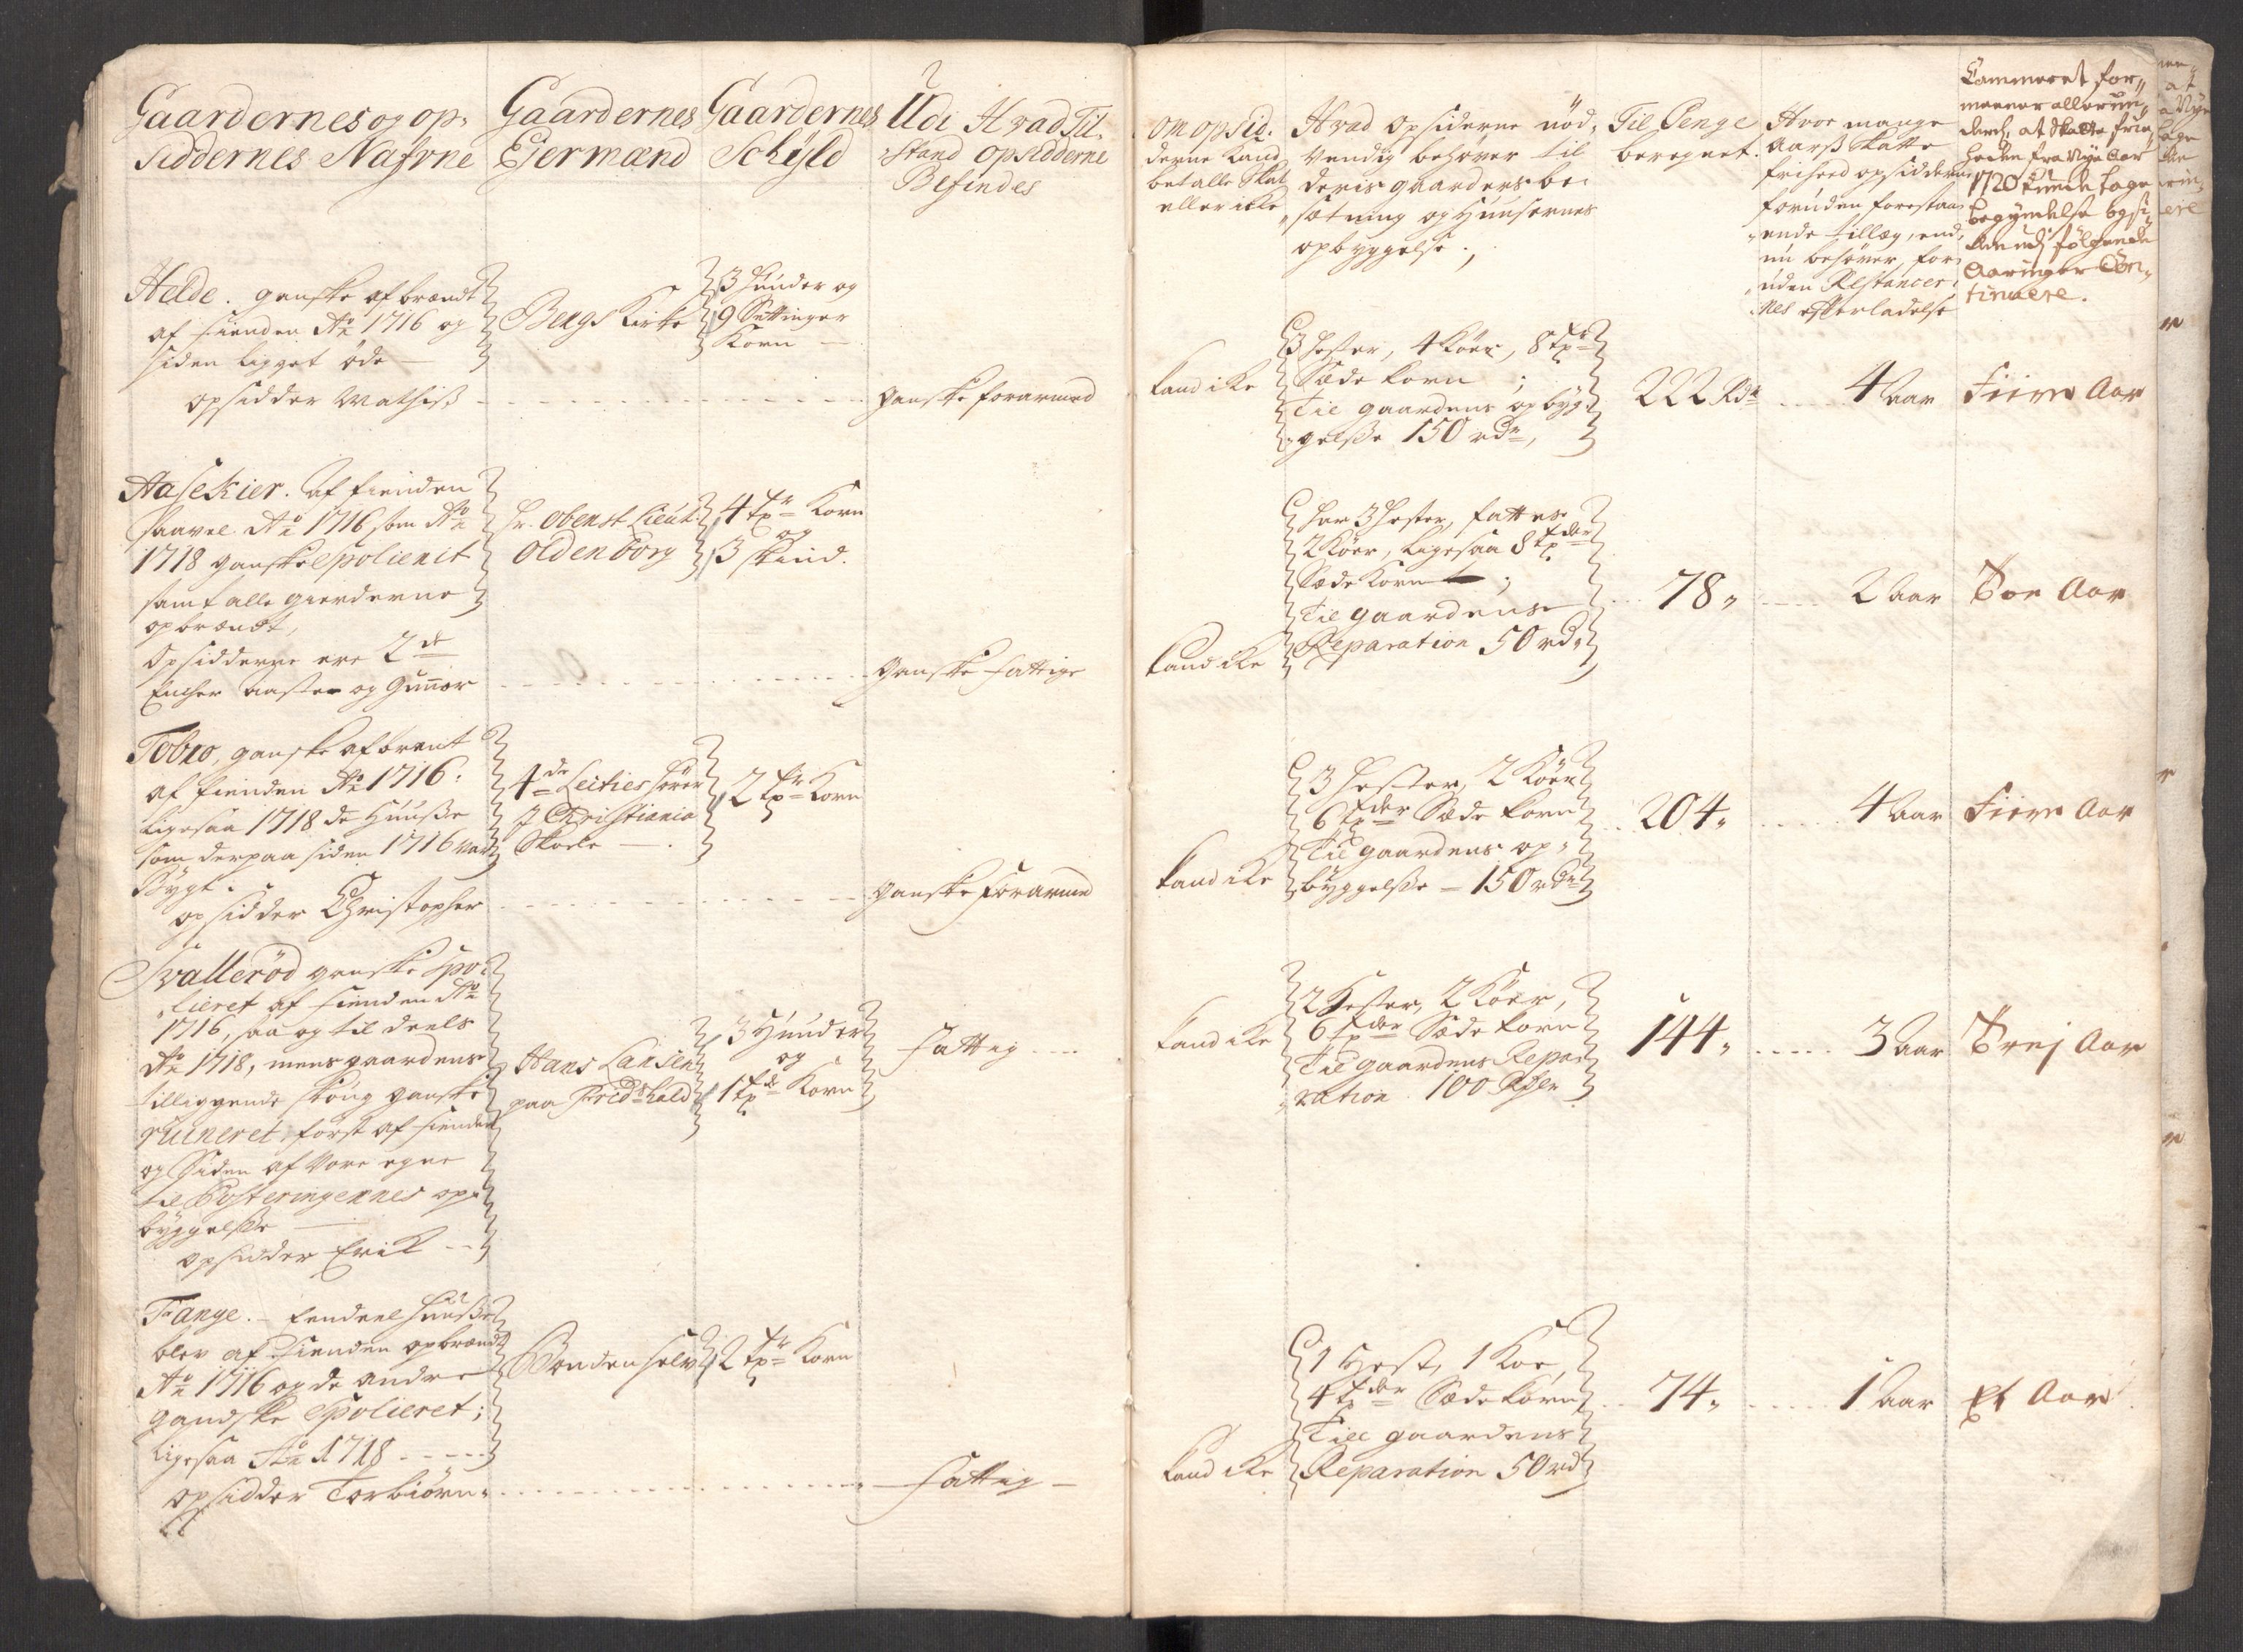 Gaardernes og op-
siddernes Nafvne
Gaardernes
Ejermænd
Gaardernes
Schyld
Udi Hvad Til-
stand opsidderne
Befindes
om opsid-
derne kand
betalle Skat
eller icke
Hvad opsiderne nöd-
vendig behöver til
deris gaarders be-
sætning og Huusernes
opbyggelse.
Til Penge
beregnet.
Hvor mange
Aarß Skatte
friheed opsidderne
foruden forestaa-
ende tillæg, end
nu behöver, for-
uden Restancer-
nes efterladelse
Cammeret for-
meener allerun-
derd. at Skatte frie-
heden fra Nye Aar
1720 kunde tage
begyndelse og si-
den udi fölgende
Aaringer Con-
tinuere.
Helde. ganske afbrændt
af fienden Ao 1716 og
siden ligget öde
opsidder Mathiß
Bergs Kirke
3 Hunder og
9 Settinger
Korn
ganske forarmed
kand icke
3 Hester, 4 Köer, 8 tdr
Sæde korn;
Til gaardens opbyg-
gelße 150 rdr,
222 Rdr
4 Aar
Fiire Aar
Aasekier. af fienden
saavel Ao 1716 som Ao
1718 ganske Spolierit
samt alle gierderne
opbrændt,
Opsidderne ere 2de
og Gunor
Hr. Oberst Lieut:
Oldenborg
4 tr Korn
og
3 skind.
ganske fattige
kand icke
har 3 Hester, fattes
2 Köer, ligesaa 8 tder
Sæde Korn;
Til gaardens
Reparation 50 rd
78
2 Aar
Toe Aar
Tobro, ganske afbrent
af fienden Ao 1716.
ligesaa 1718 de Huuße
som derpaa siden 1716 var
Bygt.
opsidder Christopher
4de Lecties hörer
i Christiania
Skoele
2 tr Korn
ganske forarmed
kand icke
3 Hester, 2 Köer
6 tder Sæde korn
Til gaardens op-
byggelße 150 rdr
204
4 Aar
Fiire Aar
Svalleröd ganske Spo-
lieret af fienden Ao
1716, saa og til deels
Ao 1718, mens gaardens
tilliggende skoug ganske
ruineret, först af fienden
og siden af Vore egne
til Posteringernes op-
byggelße
opsidder Erik
Hans Larsen
paa Fridrhald
3 Hunder
og
1 td Korn
fattig
kand icke
2 Hester, 2 Köer,
6 tder Sæde korn
Til gaardens Repa-
ration 100 Rdr
144
3 Aar
Trej Aar
Tange. Eendeel Huußer
blev af fienden opbrændt
Ao 1716 og de andre
gandske Spolieret;
ligesaa Ao 1718
opsidder Torbiörn
Bonden selv
2 tr Korn
fattig
kand icke
1 Hest, 1 Koe,
4 tder Sæde korn,
Till gaardens
Reparation 50 rd
74
1 Aar
Et Aar